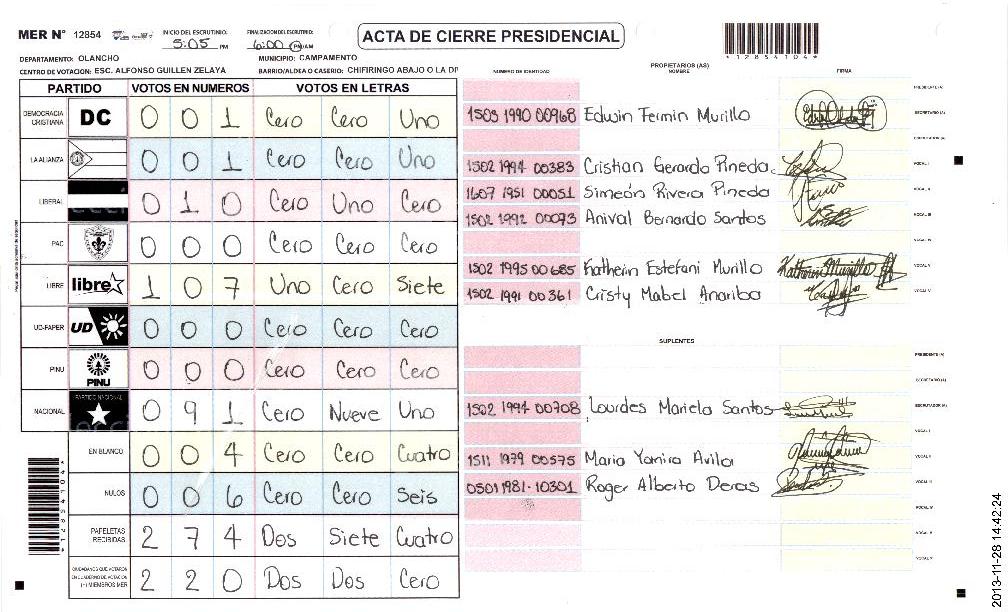 MER N° 12854 INICIO DEL ESCRUTINIO: 5:05 PM FINALIZACION DEL ESCRUTINIO: 6:00 PM/AM ACTA DE CIERRE PRESIDENCIAL
*12854104*
DEPARTAMENTO: OLANCHO MUNICIPIO: CAMPAMENTO
CENTRO DE VOTACION: ESC. ALFONSO GUILLEN ZELAYA BARRIO/ALDEA O CASERIO: CHIFIRINGO ABAJO O LA DI
PARTIDO VOTOS EN NUMEROS VOTOS EN LETRAS
DEMOCRACIA CRISTIANA DC 0 0 1 Cero Cero Uno
LA ALIANZA 0 0 1 Cero Cero Uno
LIBERAL 0 1 0 Cero Uno Cero
PAC 0 0 0 Cero Cero Cero
LIBRE libre 1 0 7 Uno Cero Siete
UD-FAPER UD 0 0 0 Cero Cero Cero
PINU PINU 0 0 0 Cero Cero Cero
NACIONAL PARTIDO NACIONAL 0 9 1 Cero Nueve Uno
EN BLANCO 0 0 4 Cero Cero Cuatro
NULOS 0 0 6 Cero Cero Seis
PAPELETAS RECIBIDAS 2 7 4 Dos Siete Cuatro
CIUDADANOS QUE VOTARON EN CUADERNO DE VOTACION (+) MIEMBROS MER 2 2 0 Dos Dos Cero
*12854104*
NUMERO DE IDENTIDAD PROPIETARIOS (AS) NOMBRE FIRMA
PRESIDENTE (A)
1503 1990 00968 Edwin Fermin Murillo SECRETARIO (A)
ESCRUTADOR (A)
1502 1994 00383 Cristian Gerardo Pineda VOCAL I
1607 1951 00051 Simeón Rivera Pineda VOCAL II
1502 1992 00073 Anival Bernardo Santos VOCAL III
VOCAL IV
1502 1995 00685 Katherin Estefani Murillo VOCAL V
1502 1991 00361 Cristy Mabel Anariba
SUPLENTES
PRESIDENTE (A)
SECRETARIO (A)
1502 1994 00708 Lourdes Mariela Santos ESCRUTADOR (A)
VOCAL I
1511 1979 00575 Maria Yamira Avila VOCAL II
0501 1981-10301 Roger Alberto Deras VOCAL III
VOCAL IV
VOCAL V
2013-11-28 14:42:24